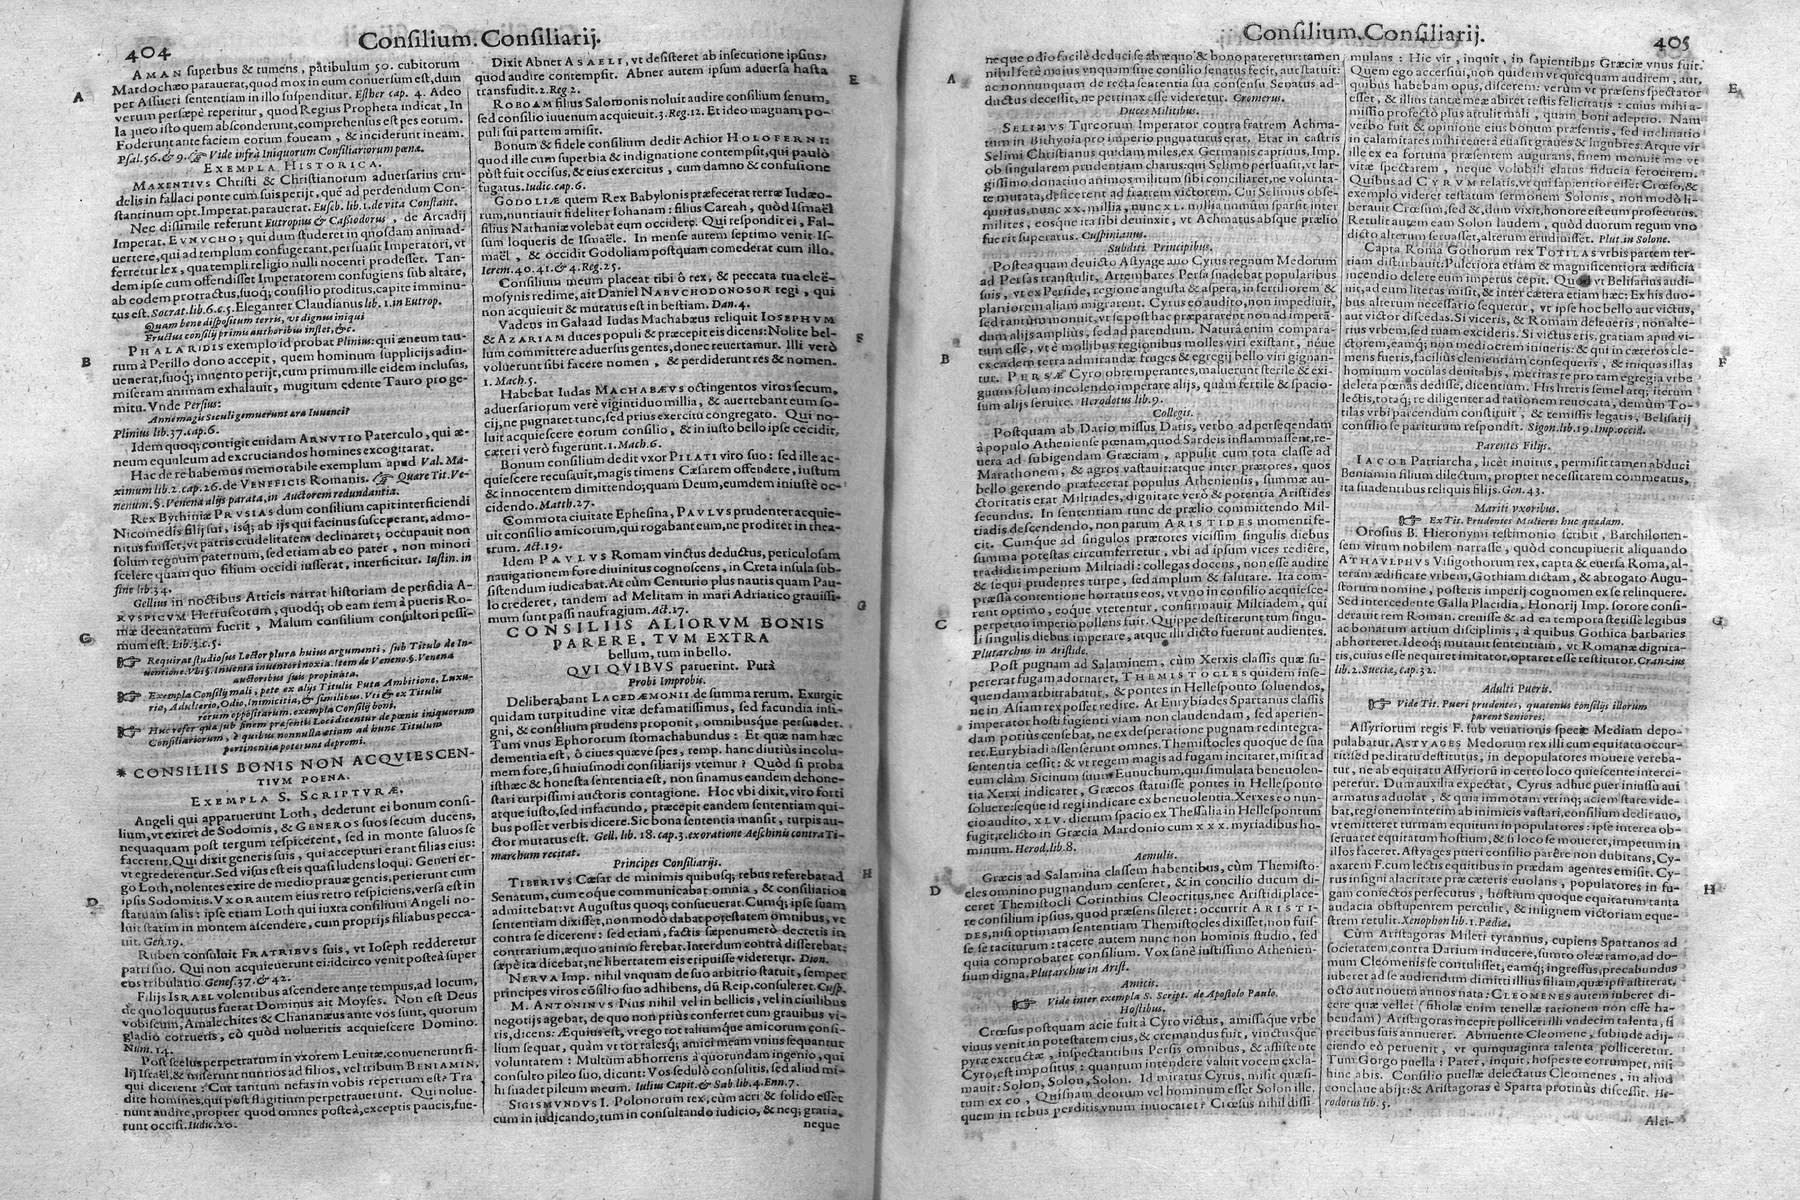 404
Consilium. Consiliarij.
AMAN superbus & tumens, patibulum 50. cubitorum
Mardochæo parauerat, quod mox in eum conuersum est, dum
per Assueri sententiam in illo suspenditur. Esther cap. 4. Adeo
verum persæpè reperitur, quod Regius Propheta indicat, In
laqueo isto quem absconderunt, comprehensus est pes eorum.
Foderunt ante faciem eorum foueam, & inciderunt in eam.
Psal. 56. & 9. ☞ Vide infrà Iniquorum Consiliariorum pœna.
EXEMPLA HISTORICA.
MAXENTIVS Christi & Christianorum aduersarius cru-
delis in fallaci ponte cum suis perijt, quẽ ad perdendum Con-
stantinum opt. Imperat. parauerat. Euseb. lib. 1. de vita Constant.
Nec dissimile referunt Eutropius & Cassiodorus, de Arcadij
Imperat. EVNVCHO; qui dum studeret in quosdam animad-
uertere, qui ad templum confugerant, persuasit Imperatori, vt
ferretur lex, qua templi religio nulli nocenti prodesset. Tan-
dem ipse cum offendisset Imperatorem confugiens sub altare,
ab eodem protractus, suoq; consilio proditus, capite imminu-
tus est. Socrat. lib. 6. c. 5. Eleganter Claudianus lib. 1. in Eutrop.
Quam bene dispositum terris, vt dignus iniqui
Fructus consilij primis authoribus instet, &c.
PHALARIDIS exemplo id probat Plinius: qui æneum tau-
rum à Perillo dono accepit, quem hominum supplicijs adin-
uenerat, suoq; inuento perijt, cum primum ille eidem inclusus,
miseram animam exhalauit, mugitum edente Tauro pro ge-
mitu. Vnde Persius:
Anne magis Siculi gemuerunt æra Iuuenci?
Plinius lib. 37. cap. 6.
Idem quoq; contigit cuidam ARNVTIO Paterculo, qui æ-
neum equuleum ad excruciandos homines excogitarat.
Hac de re habemus memorabile exemplum apud Val. Ma-
ximum lib. 2. cap. 26. de VENEFICIS Romanis. ☞ Quare Tit. Ve-
nenum. §. Venena alijs parata, in Auctorem redundantia.
Rex Bythiniæ PRVSIAS dum consilium capit interficiendi
Nicomedis filij sui, isq; ab ijs qui facinus susceperant, admo-
nitus fuisset, vt patris crudelitatem declinaret; occupauit non
solum regnum paternum, sed etiam ab eo pater, non minori
scelere quam quo filium occidi iusserat, interficitur. Iustin. in
fine lib. 34.
Gellius in noctibus Atticis narrat historiam de perfidia A-
RVSPICVM Hetruscorum, quodq; ob eam rem à pueris Ro-
mæ decantatum fuerit, Malum consilium consultori pessi-
mum est. Lib. 5. c. 5.
☞ Requirat studiosus Lector plura huius argumenti, sub Titulo de In-
uentione. Vbi §. Inuenta inuentori noxia. Item de Veneno. §. Venena
auctoribus suis propinata.
☞ Exempla Consilij mali, pete ex alijs Titulis Puta Ambitione, Luxu-
ria, Adulterio, Odio, Inimicitia, & similibus. Vti & ex Titulis
rerum oppositarum, exempla Consilij boni,
☞ Huc refer quæ sub finem præsentis Loci dicentur de pœnis iniquorum
Consiliariorum, è quibus nonnulla etiam ad hunc Titulum
pertinentia poterunt depromi.
* CONSILIIS BONIS NON ACQVIESCEN-
TIVM POENA.
EXEMPLA S. SCRIPTVRÆ.
Angeli qui apparuerunt Loth, dederunt ei bonum consi-
lium, vt exiret de Sodomis, & GENEROS suos secum ducens,
nequaquam post tergum respicerent, sed in monte saluos se
facerent. Qui dixit generis suis, qui accepturi erant filias eius:
vt egrederentur. Sed visus est eis quasi ludens loqui. Generi er-
go Loth, nolentes exire de medio prauæ gentis, perierunt cum
ipsis Sodomitis. VXOR autem eius retro respiciens, versa est in
statuam salis: ipse etiam Loth qui iuxta consilium Angeli no-
luit statim in montem ascendere, cum proprijs filiabus pecca-
uit. Gen. 19.
Ruben consuluit FRATRIBVS suis, vt Ioseph redderetur
patri suo. Qui non acquieuerunt ei: idcirco venit posteà super
eos tribulatio. Genes. 37. & 42.
Filijs ISRAEL volentibus ascendere ante tempus, ad locum,
de quo loquutus fuerat Dominus ait Moyses. Non est Deus
vobiscum, Amalechites & Chananæus ante vos sunt, quorum
gladio corruetis, eò quòd nolueritis acquiescere Domino.
Num. 14.
Post scelus perpetratum in vxorem Leuitæ, conuenerunt fi-
lij Israël, & miserunt nuntios ad filios, vel tribum BENIAMIN,
qui dicerent: Cur tantum nefas in vobis repertum est? Tra-
dite homines, qui post flagitium perpetrauerunt. Qui nolue-
runt audire, propter quod omnes posteà, exceptis paucis, fue-
runt occisi. Iudic. 20.
Dixit Abner ASAELI, vt desisteret ab insecutione ipsius,
quod audire contempsit. Abner autem ipsum aduersa hasta
transfudit. 2. Reg. 2.
ROBOAM filius Salomonis noluit audire consilium senum,
sed consilio iuuenum acquieuit. 3. Reg. 12. Et ideo magnam po-
puli sui partem amisit.
Bonum & fidele consilium dedit Achior HOLOFERNI:
quod ille cum superbia & indignatione contempsit, qui paulò
pòst fuit occisus, & eius exercitus, cum damno & confusione
fugatus. Iudic. cap. 6.
GODOLIÆ quem Rex Babylonis præfecerat terræ Iudæo-
rum, nuntiauit fideliter Iohanam: filius Careah, quòd Ismaël
filius Nathaniæ volebat eum occidere. Qui respondit ei, Fal-
sum loqueris de Ismaële. In mense autem septimo venit Is-
maël, & occidit Godoliam postquam comederat cum illo.
Ierem. 40. 41. & 4. Reg. 25.
Consilium meum placeat tibi ô rex, & peccata tua eleë-
mosynis redime, ait Daniel NABVCHODONOSOR regi, qui
non acquieuit & mutatus est in bestiam. Dan. 4.
Vadens in Galaad Iudas Machabæus reliquit IOSEPHVM
& AZARIAM duces populi & præcepit eis dicens: Nolite bel-
lum committere aduersus gentes, donec reuertamur. Illi verò
voluerunt sibi facere nomen, & perdiderunt res & nomen.
1. Mach. 5.
Habebat Iudas MACHABÆVS octingentos viros secum,
aduersariorum verè viginti duo millia, & auertebant eum so-
cij, ne pugnaret tunc, sed prius exercitu congregato. Qui no-
luit acquiescere eorum consilio, & in iusto bello ipse cecidit,
cæteri verò fugerunt. 1. Mach. 6.
Bonum consilium dedit vxor PILATI viro suo: sed ille ac-
quiescere recusauit, magis timens Cæsarem offendere, iustum
& innocentem dimittendo; quam Deum, eumdem iniustè oc-
cidendo. Matth. 27.
Commota ciuitate Ephesina, PAVLVS prudenter acquie-
uit consilio amicorum, qui rogabant eum, ne prodiret in thea-
trum. Act. 19.
Idem PAVLVS Romam vinctus deductus, periculosam
nauigationem fore diuinitus cognoscens, in Creta insula sub-
sistendum iudicabat. At cùm Centurio plus nautis quam Pau-
lo crederet, tandem ad Melitam in mari Adriatico grauissi-
mum sunt passi naufragium. Act. 17.
CONSILIIS ALIORVM BONIS
PARERE, TVM EXTRA
bellum, tum in bello.
QVI QVIBVS paruerint. Putà
Probi Improbis.
Deliberabant LACEDÆMONII de summa rerum. Exurgit
quidam turpitudine vitæ defamatissimus, sed facundia insi-
gni, & consilium prudens proponit, omnibusque persuadet.
Tum vnus Ephororum stomachabundus: Et quæ nam hæc
dementia est, ô ciues quæ ve spes, remp. hanc diutiùs incolu-
mem fore, si huiusmodi consiliarijs vtemur? Quòd si proba
isthæc & honesta sententia est, non sinamus eandem dehone-
stari turpissimi auctoris contagione. Hoc vbi dixit, viro forti
atque iusto, sed infacundo, præcepit eandem sententiam qui-
bus posset verbis dicere. Sic bona sententia mansit, turpis au-
ctor mutatus est. Gell. lib. 18. cap. 3. ex oratione Aeschinis contra Ti-
marchum recitat.
Principes Consiliarijs.
TIBERIVS Cæsar de minimis quibusq; rebus referebat ad
Senatum, cum eoque communicabat omnia, & consiliarios
admittebat: vt Augustus quoq; consueuerat. Cumq; ipse suam
sententiam dixisset, non modò dabat potestatem omnibus, vt
contra se dicerent: sed etiam, factis sæpenumerò decretis in
contrarium, æquo animo ferebat. Interdum contrà disserebat:
sæpè ita dicebat, ne libertatem eis eripuisse videretur. Dion.
NERVA Imp. nihil vnquam de suo arbitrio statuit, semper
principes viros cõsilio suo adhibens, dũ Reip. consuleret. Cusp.
M. ANTONINVS Pius nihil vel in bellicis, vel in ciuilibus
negotijs agebat, de quo non priùs conferret cum grauibus vi-
ris, dicens: Æquius est, vt ego tot taliumque amicorum consi-
lium sequar, quàm vt tot talesq; amici meam vnius sequantur
voluntatem: Multùm abhorrens à quorundam ingenio, qui
consulto pileo suo, dicunt: Vos sedulò consulitis, sed aliud mi-
hi suadet pileum meum. Iulius Capit. & Sab. lib. 4. Enn. 7.
SIGISMVNDVS I. Polonorum rex, cùm acri & solido esset
cum in iudicando, tum in consultando iudicio, & neq; gratia,
neque
Consilium. Consiliarij.
405
neque odio facilè deduci se ab æquo & bono pateretur: tamen
nihil ferè maius vnquam sine consilio senatus fecit, aut statuit:
ac nonnunquam de recta sententia sua consensu Senatus ad-
ductus decessit, ne pertinax esse videretur. Cromerus.
Duces Militibus.
SELIMVS Turcorum Imperator contra fratrem Achma-
tum in Bithynia pro imperio pugnaturus erat. Erat in castris
Selimi Christianus quidam miles, ex Germanis captiuis, Imp.
ob singularem prudentiam charus: qui Selimo persuasit, vt lar-
gissimo donatiuo animos militum sibi conciliaret, ne volunta-
te mutata, desciscerent ad fratrem victorem. Cui Selimus obse-
quutus, nunc xx. millia, nunc XL. millia numûm sparsit inter
milites, eosque ita sibi deuinxit, vt Achmatus absque prælio
fuerit superatus. Cuspinianus.
Subditi Principibus.
Posteaquam deuicto Astyage auo Cyrus regnum Medorum
ad Persas transtulit, Artembares Persa suadebat popularibus
suis, vt ex Perside, regione angusta & aspera, in fertiliorem &
planiorem aliam migrarent. Cyrus eo audito, non impediuit,
sed tantùm monuit, vt se post hac præpararent non ad imperã-
dum alijs amplius, sed ad parendum. Natura enim compara-
tum esse, vt è mollibus regionibus molles viri existant, néue
ex eadem terra admirandæ fruges & egregij bello viri gignan-
tur. PERSÆ Cyro obtemperantes, maluerunt sterile & exi-
guum solum incolendo imperare alijs, quàm fertile & spacio-
sum alijs seruire. Herodotus lib. 9.
Collegis.
Postquam ab Dario missus Datis, verbo ad persequendam
à populo Atheniense pœnam, quod Sardeis inflammassent, re-
uera ad subigendam Græciam, appulit cum tota classe ad
Marathonem, & agros vastauit: atque inter prætores, quos
bello gerendo præfecerat populus Atheniensis, summæ au-
ctoritatis erat Miltiades, dignitate verò & potentia Aristides
secundus. In sententiam tunc de prælio committendo Mil-
tiadis descendendo, non parum ARISTIDES momenti fe-
cit. Cumque ad singulos prætores vicissim singulis diebus
summa potestas circumferretur, vbi ad ipsum vices rediêre,
tradidit imperium Miltiadi: collegas docens, non esse audire
& sequi prudentes turpe, sed amplum & salutare. Ita com-
pressa contentione hortatus eos, vt vno in consilio acquiesce-
rent optimo, eoque vterentur, confirmauit Milciadem, qui
perpetuo imperio pollens fuit. Quippe destiterunt tum singu-
li singulis diebus imperare, atque illi dicto fuerunt audientes.
Plutarchus in Aristide.
Post pugnam ad Salaminem, cùm Xerxis classis quæ su-
pererat fugam adornaret, THEMISTOCLES quidem inse-
quendam arbitrabatur, & pontes in Hellesponto soluendos,
ne in Asiam rex posset redire. At Eurybiades Spartanus classis
imperator hosti fugienti viam non claudendam, sed aperien-
dam potiùs censebat, ne ex desperatione pugnam redintegra-
ret. Eurybiadi assenserunt omnes. Themistocles quoque de sua
sententia cessit: & vt regem magis ad fugam incitaret, misit ad
eum clàm Sicinum suum Eunuchum, qui simulata beneuolen-
tia Xerxi indicaret, Græcos statuisse pontes in Hellesponto
soluere: seque id regi indicare ex beneuolentia. Xerxes eo nun-
cio audito, XLV. dierum spacio ex Thessalia in Hellespontum
fugit, relicto in Græcia Mardonio cum xxx. myriadibus ho-
minum. Herod. lib. 8.
Aemulis.
Græcis ad Salamina classem habentibus, cùm Themisto-
cles omnino pugnandum censeret, & in concilio ducum di-
ceret Themistocli Corinthius Cleocritus, nec Aristidi place-
re consilium ipsius, quod præsens sileret: occurrit ARISTI-
DES, nisi optimam sententiam Themistocles dixisset, non fuis-
se se taciturum: tacere autem nunc non hominis studio, sed
quia comprobaret consilium. Vox sanè iustissimo Athenien-
sium digna. Plutarchus in Arist.
Amicis.
☞ Vide inter exempla S. Script. de Apostolo Paulo.
Hostibus.
Crœsus postquam acie fuit à Cyro victus, amissaque vrbe
viuus venit in potestatem eius, & cremandus fuit, vinctusque
pyræ extructæ, inspectantibus Persis omnibus, & assistente
Cyro, est impositus: quantum intendere valuit vocem excla-
mauit: Solon, Solon, Solon. Id miratus Cyrus, misit qui
tum ex eo, Quisnam deorum vel hominum esset Solon ille,
quem in rebus perditis vnum inuocaret? Crœsus nihil dissi-
mulans: Hic vir, inquit, in sapientibus Græciæ vnus fuit.
Quem ego accersiui, non quidem vt quicquam audirem, aut,
quibus habebam opus, discerem: verùm vt præsens spectator
esset, & illius tantæ me abiret testis felicitatis: cuius mihi a-
missio profectò plus attulit mali, quam boni adeptio. Nam
verbo fuit & opinione eius bonum præsentis, sed inclinatio
in calamitates mihi reuerà euasit graues & lugubres. Atque vir
ille ex ea fortuna præsentem augurans, finem monuit me vt
vitæ spectarem, neque volubili elatus fiducia ferocirem.
Quibus ad CYRVM relatis, vt qui sapientior esset Crœso, &
exemplo videret testatum sermonem Solonis, non modò li-
berauit Crœsum, sed &, dum vixit, honore est eum prosecutus.
Retulit autem eam Solon laudem, quòd duorum regum vno
dicto alterum seruasset, alterum erudiuisset. Plut. in Solone.
Capta Roma Gothorum rex TOTILAS vrbis partem ter-
tiam disturbauit. Pulchriora etiam & magnificentiora ædificia
incendio delere eum impetus cepit. Quod vt Belisarius audi-
uit, ad eum literas misit, & inter cætera etiam hæc: Ex his duo-
bus alterum necessariò sequetur, vt ipse hoc bello aut victus,
aut victor discedas. Si viceris, & Romam deleueris, non alte-
rius vrbem, sed tuam excideris. Si victus eris, gratiam apud vi-
ctorem, eamq; non mediocrem inieris: & qui in cæteros cle-
mens fueris, faciliùs clementiam consequeris, & iniquas illas
hominum voculas deuitabis, meritas te pro tam egregia vrbe
deleta pœnas dedisse, dicentium. His literis semel atq; iterum
lectis, totaq; re diligenter ad rationem reuocata, demùm To-
tilas vrbi parcendum constituit, & remissis legatis, Belisarij
consilio se pariturum respondit. Sigon. lib. 19. Imp. occid.
Parentes Filijs.
IACOB Patriarcha, licèt inuitus, permisit tamen abduci
Beniamin filium dilectum, propter necessitatem commeatus,
ita suadentibus reliquis filijs. Gen. 43.
Mariti vxoribus.
☞ Ex Tit. Prudentes Mulieres huc quædam.
Orosius B. Hieronymi testimonio scribit, Barchilonen-
sem virum nobilem narrasse, quòd concupiuerit aliquando
ATHAVLPHVS Visigothorum rex, capta & euersa Roma, al-
teram ædificare vrbem, Gothiam dictam, & abrogato Augu-
storum nomine, posteris imperij cognomen ex se relinquere.
Sed intercedente Galla Placidia, Honorij Imp. sorore consi-
derauit rem Roman. creuisse & ad ea tempora stetisse legibus
ac bonarum artium disciplinis, à quibus Gothica barbaries
abhorreret. Ideoq; mutauit sententiam, vt Romanæ dignita-
tis, cuius esse nequiret imitator, optaret esse restitutor. Cranzius
lib. 2. Sueciæ, cap. 32.
Adulti Pueris.
☞ Vide Tit. Pueri prudentes, quatenus consilijs illorum
parent Seniores.
Assyriorum regis F. sub venationis specie Mediam depo-
pulabatur. ASTYAGES Medorum rex illi cum equitatu occur-
rit: sed peditatu destitutus, in depopulatores mouere vereba-
tur, ne ab equitatu Assyriorũ in certo loco quiescente interci-
peretur. Dum auxilia expectat, Cyrus adhuc puer iniussu aui
armatus aduolat, & quia immotam vtrinq; aciem stare vide-
bat, regionem interim ab inimicis vastari, consilium dedit auo,
vt emitteret turmam equitum in populatores: ipse interea ob-
seruaret equitatum hostium, & si loco se moueret, impetum in
illos faceret. Astyages pueri consilio parêre non dubitans, Cy-
axarem F. cum lectis equitibus in prædam agentes emisit. Cy-
rus insigni alacritate præ cæteris euolans, populatores in fu-
gam coniectos persecutus, hostium quoque equitatum tanta
audacia obstupentem perculit, & insignem victoriam eque-
strem retulit. Xenophon lib. 1. Pædiæ.
Cùm Aristagoras Mileti tyrannus, cupiens Spartanos ad
societatem contra Darium inducere, sumto oleæ ramo, ad do-
mum Cleomenis se contulisset, eamq; ingressus, precabundus
iuberet ad se audiendum dimitti illius filiam, quæ ipsi astiterat,
octo aut nouem annos nata: CLEOMENES autem iuberet di-
cere quæ vellet (filiolæ enim tenellæ rationem non esse ha-
bendam) Aristagoras incepit polliceri illi vndecim talenta, si
precibus suis annueret. Abnuente Cleomene, subinde adij-
ciendo eò peruenit, vt quinquaginta talenta polliceretur.
Tum Gorgo puella: Pater, inquit, hospes te corrumpet, nisi
hinc abis. Consilio puellæ delectatus Cleomenes, in aliud
conclaue abijt: & Aristagoras è Sparta protinùs discessit. He-
rodotus lib. 5.
Alci-